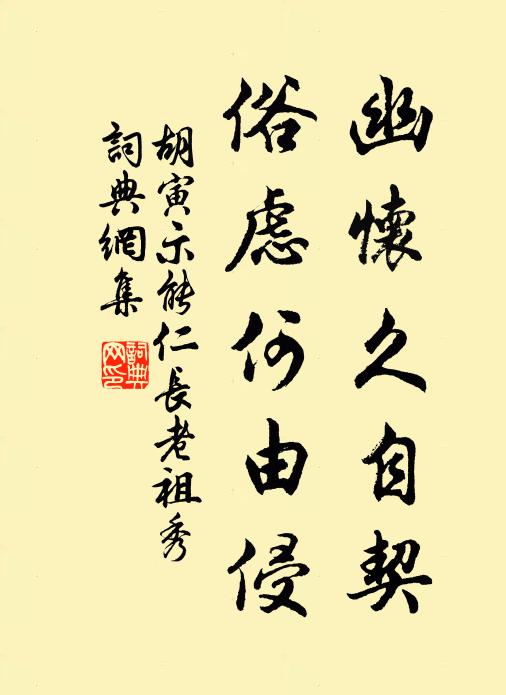 幽懷久自契
俗慮何由侵
胡寅示能仁長老祖秀
詞典網集
詞典网印